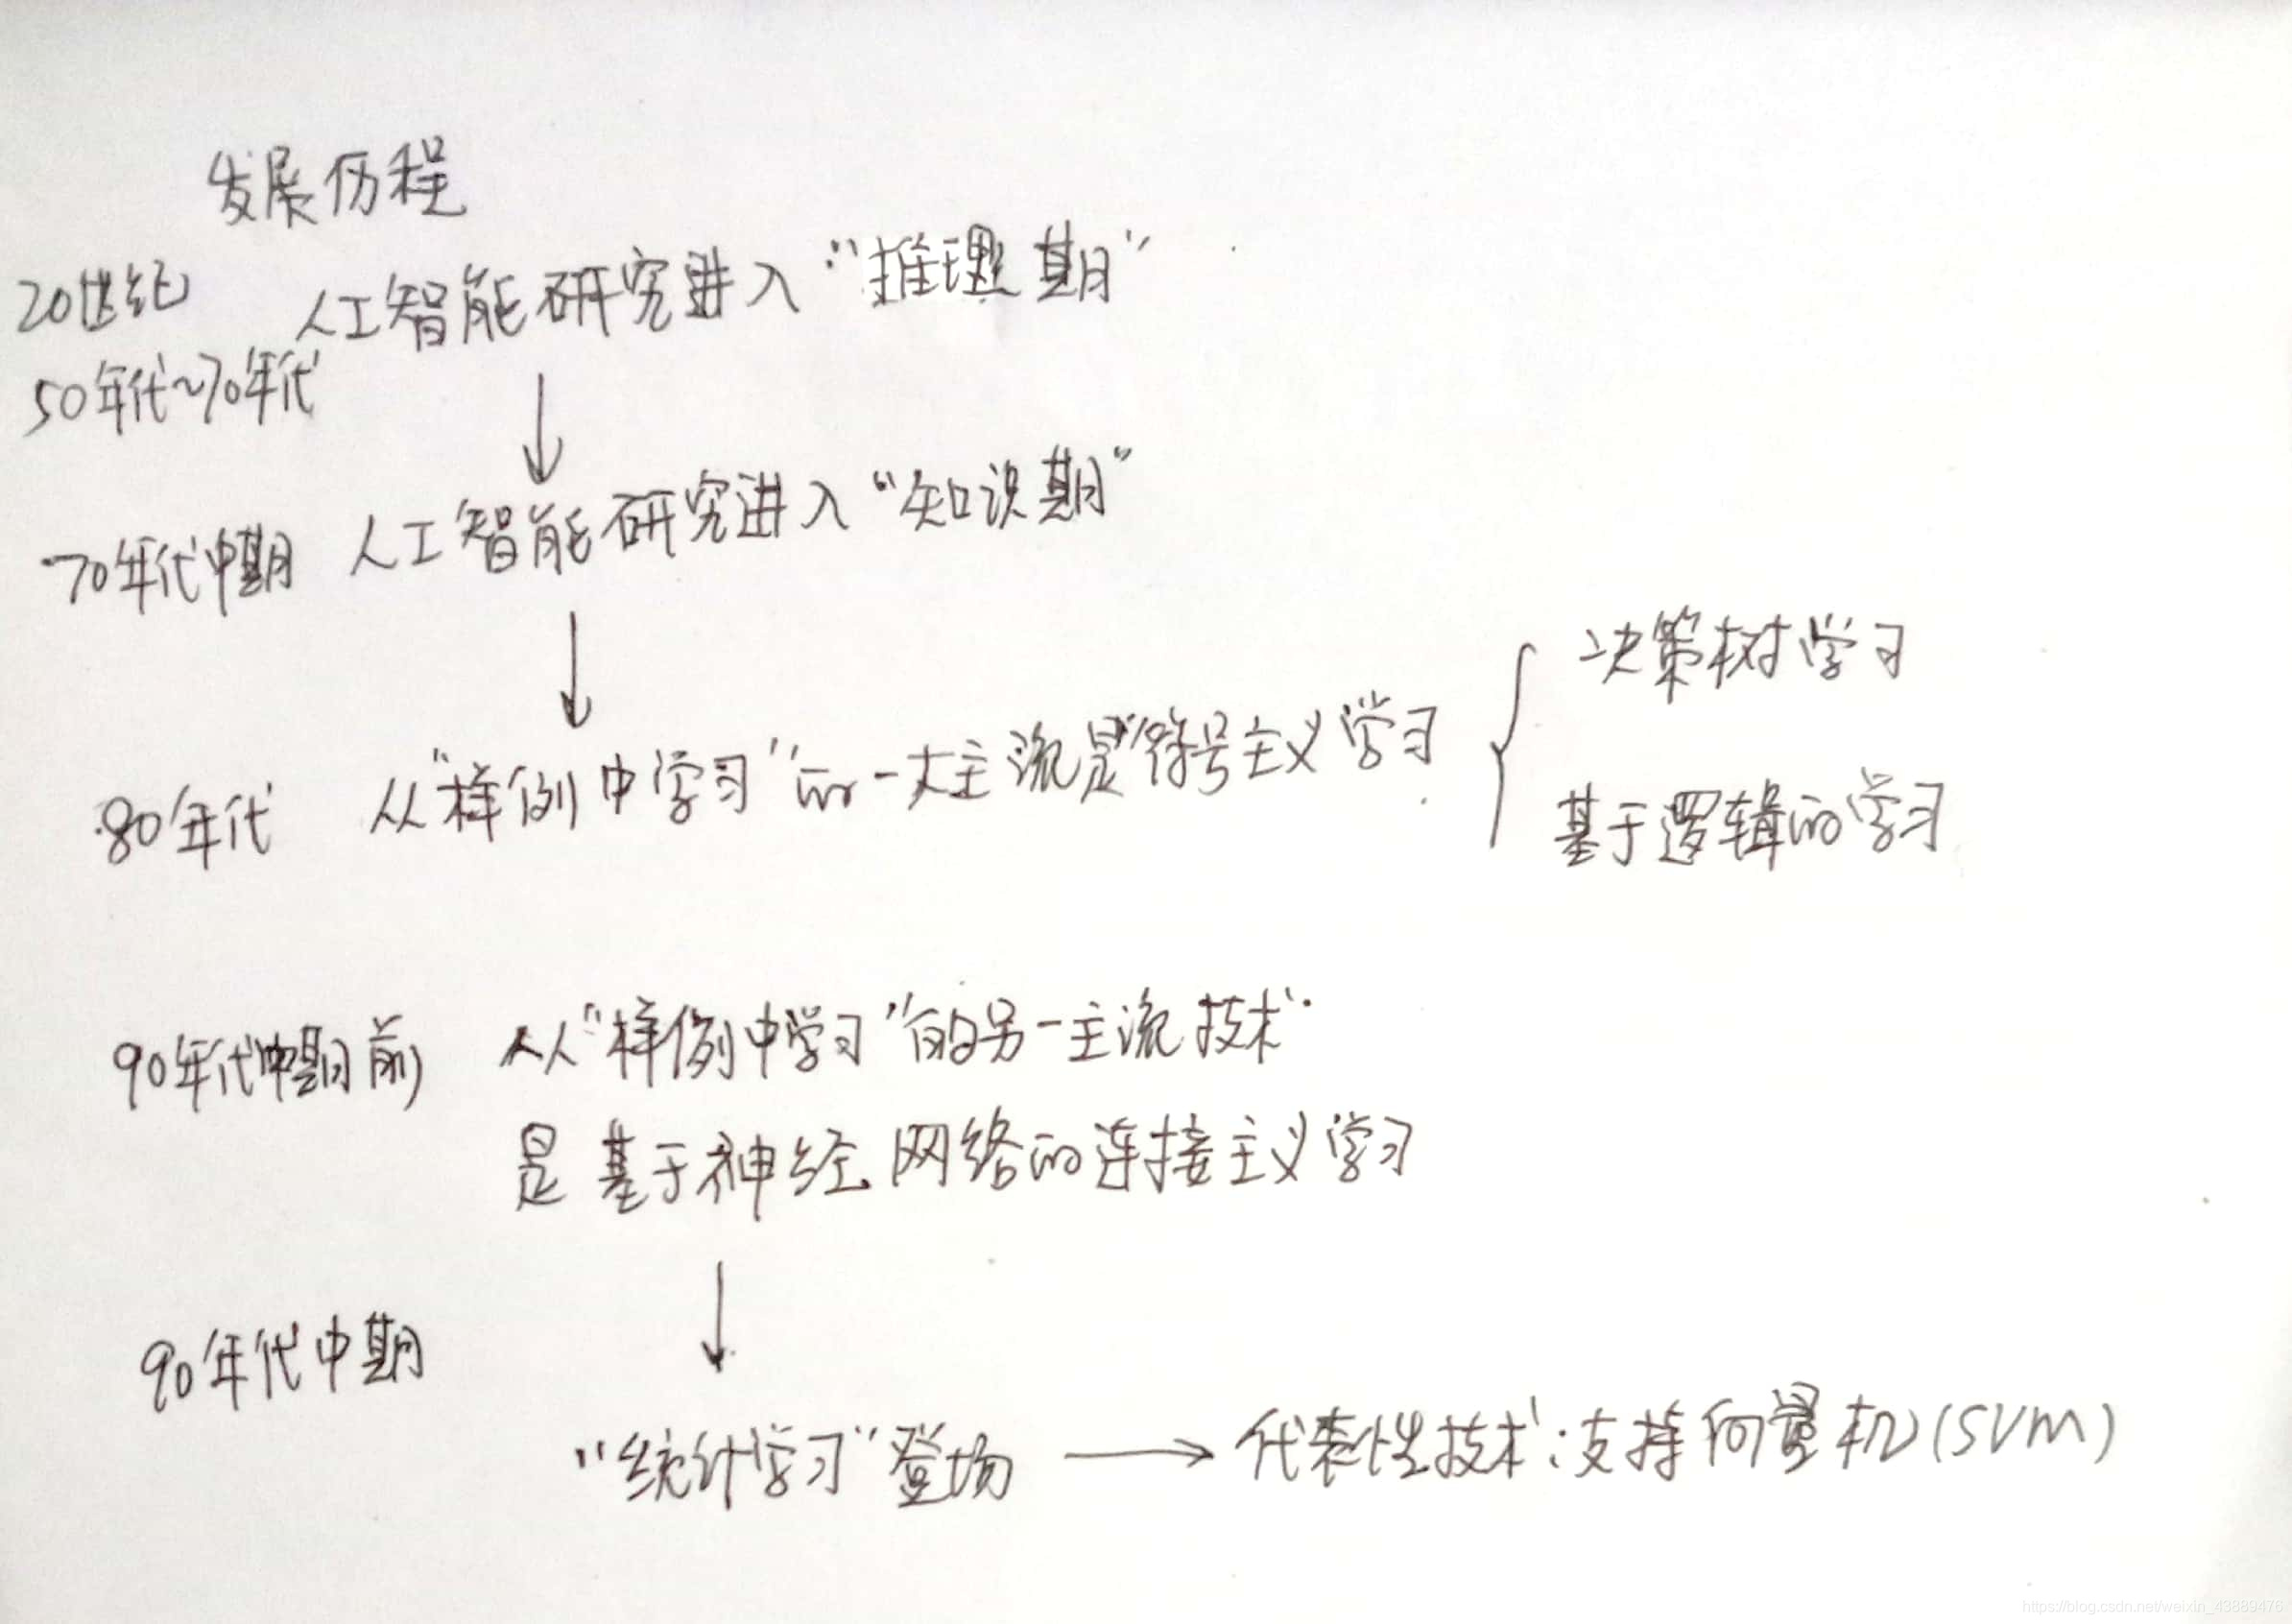 发展历程
20世纪
50年代~70年代
人工智能研究进入“推理期”
70年代中期 人工智能研究进入“知识期”
80年代 从“样例中学习”的一大主流是“符号主义学习
决策树学习
基于逻辑的学习
90年代中期前 从“样例中学习”的另一主流技术
是基于神经网络的连接主义学习
90年代中期
“统计学习”登场 → 代表性技术:支持向量机(SVM)
https://blog.csdn.net/weixin_43889476